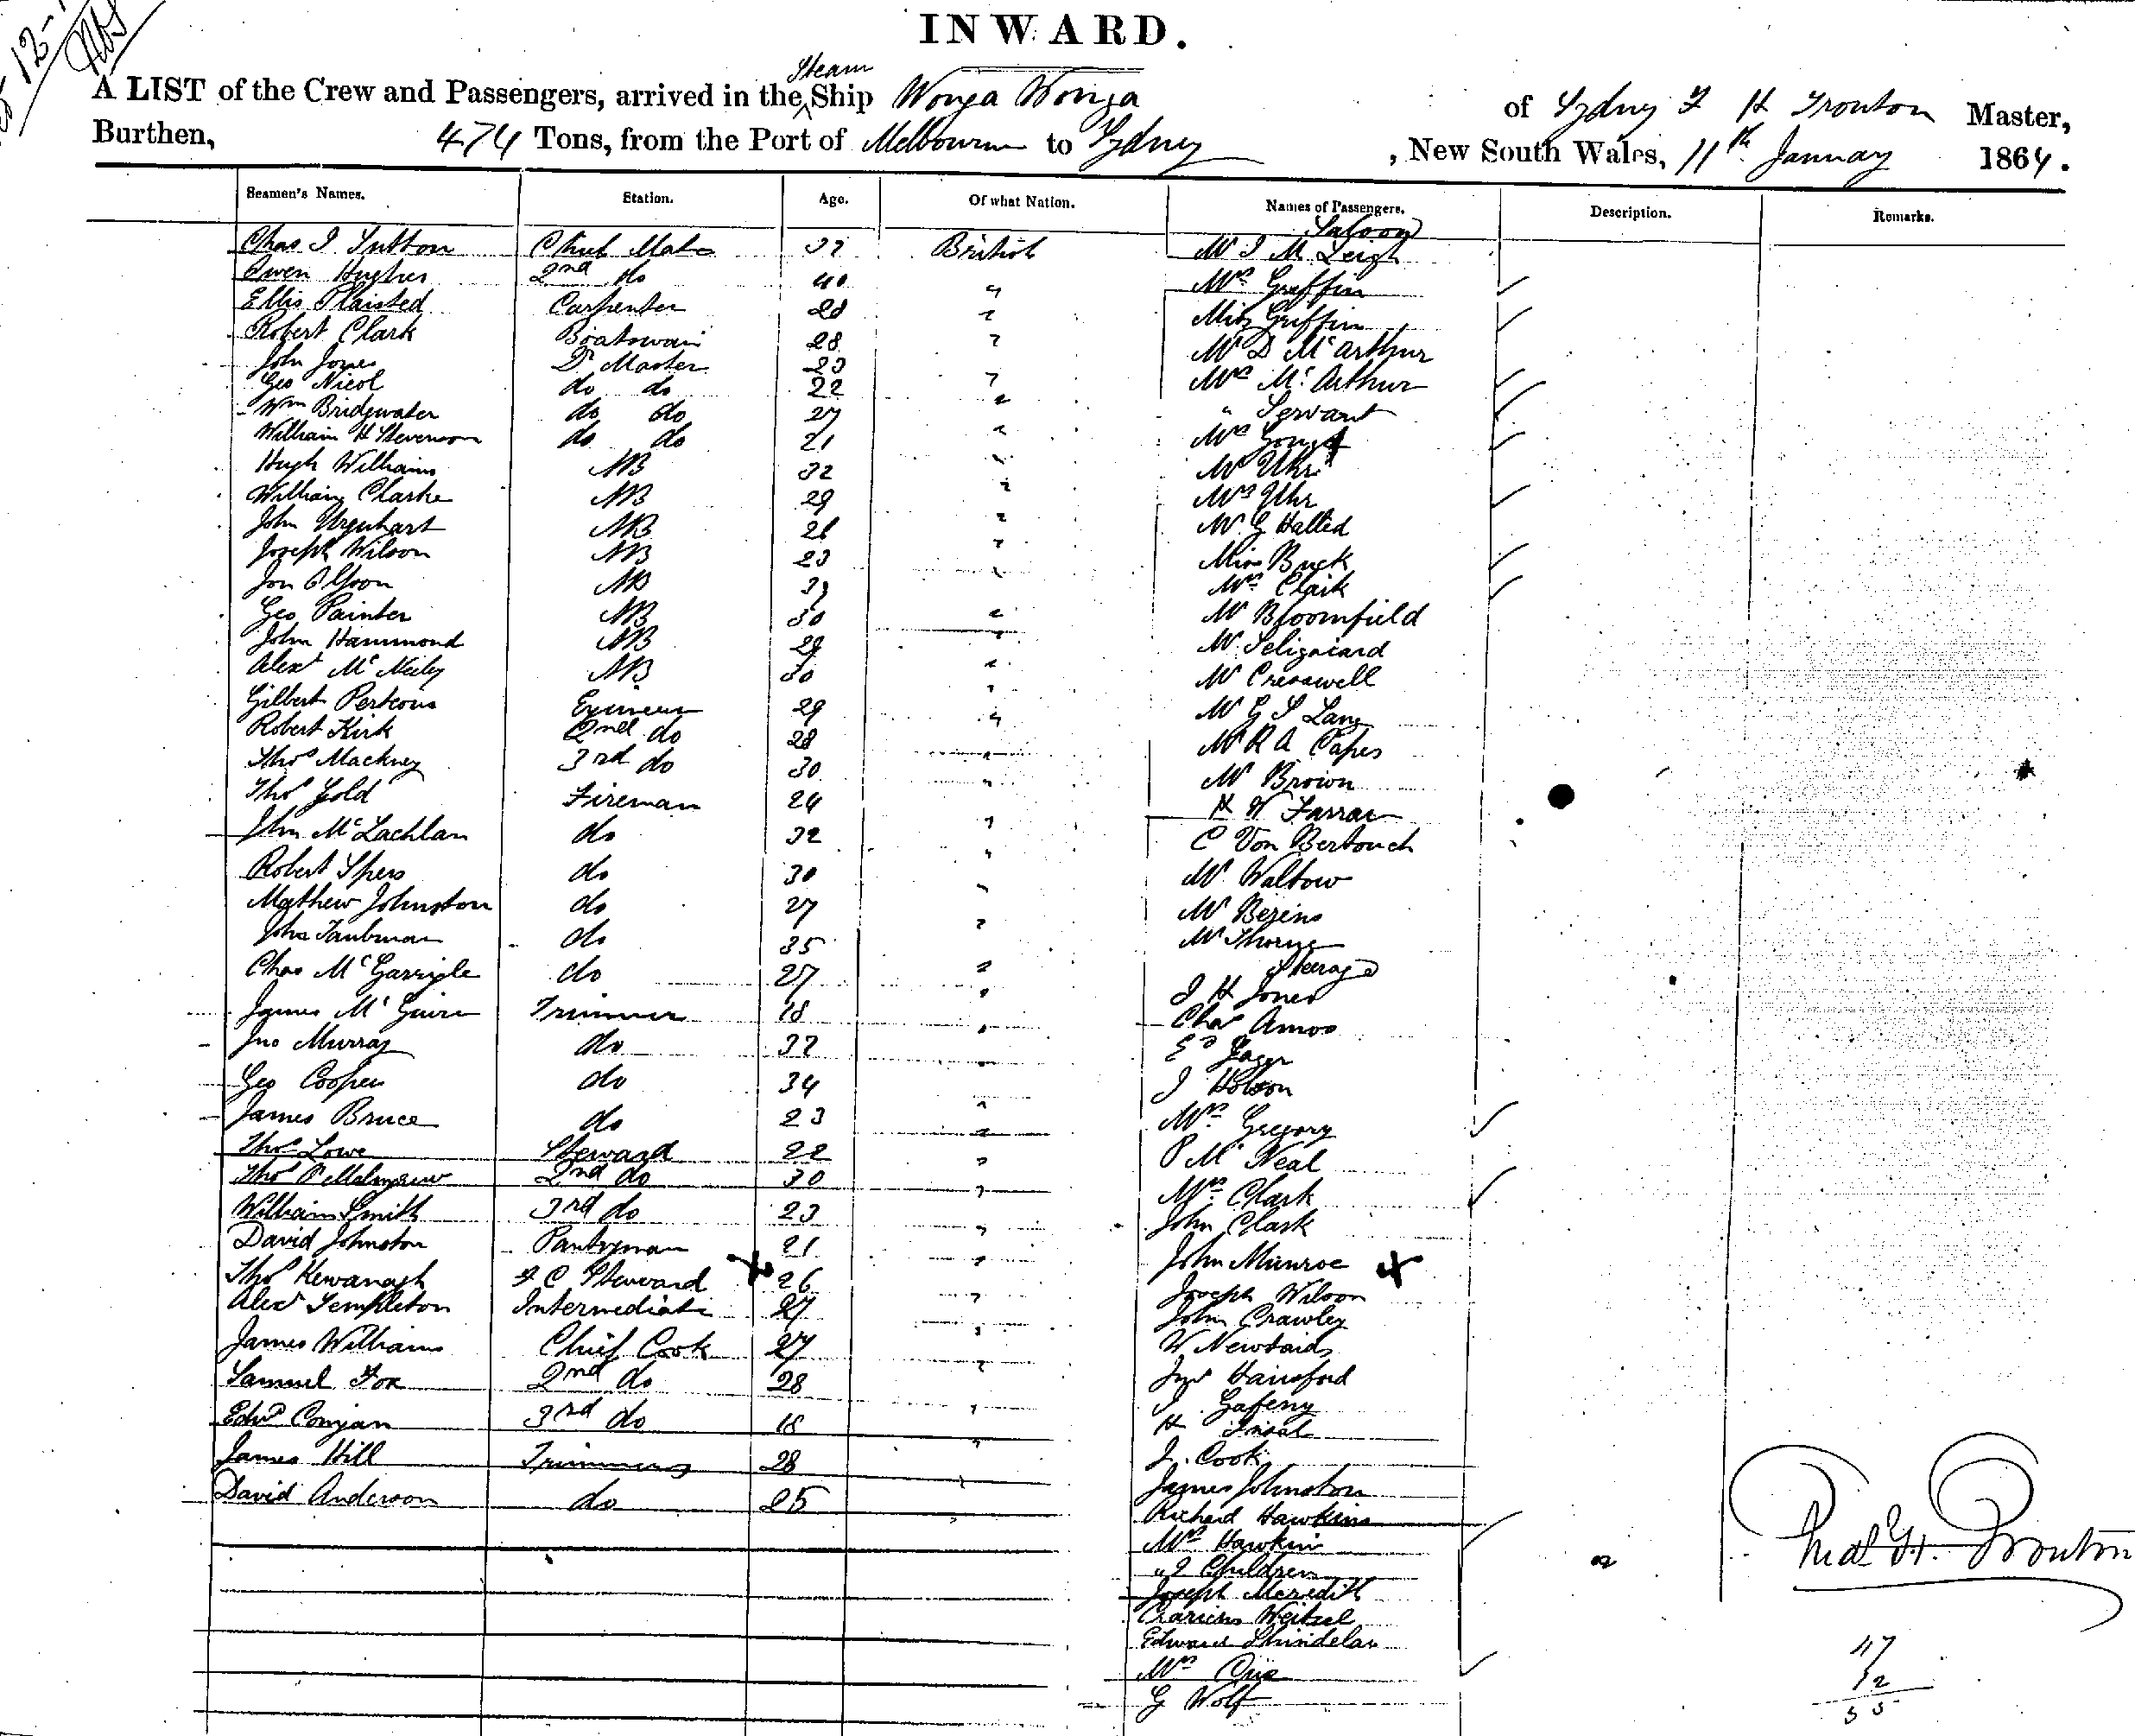 INWARD.
A LIST of the Crew and Passengers, arrived in the Steam Ship Wonga Wonga of Sydney F H Trouton Master,
Burthen, 474 Tons, from the Port of Melbourne to Sydney, New South Wales, 11th January 1864.
Seamen's Names. Station. Age. Of what Nation. Names of Passengers. Description. Remarks.
Saloon
Chas J. Sutton Chief Mate 32 British Mr J M Leigh
Owen Hughes 2nd do 40 " Mrs Griffin
Ellis Plaisted Carpenter 28 " Miss Griffin
Robert Clark Boatswain 28 " Mr D McArthur
John Jones Master 23 " Mrs McArthur
Geo Nicol do do 22 " " Servant
Wm Bridgwater do do 27 " Mrs
William H Stevenson do do 21 " Mr Uhr
Hugh Williams AB 32 " Mrs Uhr
William Clarke AB 29 " Mr G
John Urquhart AB 26 " Miss Buck
Joseph Wilson AB 23 " Mrs Clark
AB " Mr Bloomfield
Geo Painter AB 30 " Mr
John Hammond AB 29 " Mr Cresswell
Alexr McNeily AB 30 " Mr G S Lang
Gilbert Porteous Engineer 29 " Mr R A Capes
Robert Kirk 2nd do 28 " Mr Brown
Thos Mackney 3rd do 30 " H W Farrar
Thos Gold Fireman 24 " C Von Bertouch
John McLachlan do 32 " Mr
Robert Spers do 30 " Mr
Mathew Johnston do 27 " Mr Thorne
John Taubman do 35 " Steerage
Chas McGarrigle do 27 " J H Jones
James McGuire Trimmer 18 " Chas Amos
Jno Murray do 32 " Ed
Geo Cooper do 34 " J Hobson
James Bruce do 23 " Mrs Gregory
Thos Lowe Steward 22 " P McNeal
Thos 2nd do 30 " Mrs Clark
William Smith 3rd do 23 " John Clark
David Johnston Pantryman 21 " John Munroe
Thos Kewanagh F C Steward 26 " Joseph Wilson
Alexr Templeton Intermediate 27 " John Crawley
James Williams Chief Cook 27 " W
Samuel Fox 2nd do 28 " Hansford
Edwd 3rd do 18 " J. Gafeny
James Hill Trimmers 28 " H
David Anderson do 25 " J. Cook
James Johnston
Richard Hawkins
Mrs Hawkins
" 2 Children
Joseph Meredith
Weitzel
Edward
Mrs
G Wolf
Fredk H. Trouton
47
12
35